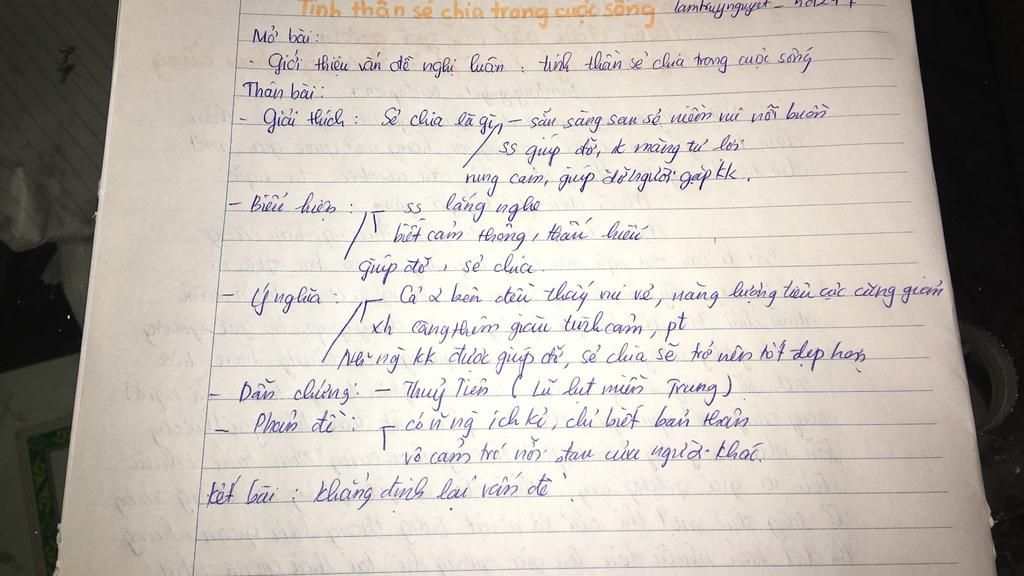 Tinh thần sẻ chia trong cuộc sống
lamtuynguyet_
Mở bài:
- Giới thiệu vấn đề nghị luận: tinh thần sẻ chia trong cuộc sống
Thân bài:
- Giải thích: Sẻ chia là gì, - sẵn sàng san sẻ niềm vui nỗi buồn
ss giúp đỡ, k màng tư lợi
rung cảm, giúp đỡ người gặp kk.
- Biểu hiện: ss lắng nghe
biết cảm thông, thấu hiểu
giúp đỡ, sẻ chia.
- Ý nghĩa: - Cả 2 bên đều thấy vui vẻ, năng lượng tiêu cực cũng giảm
xh càng thêm giàu tình cảm, pt
Như ng kk được giúp đỡ, sẻ chia sẽ trở nên tốt đẹp hơn
- Dẫn chứng: - Thuỷ Tiên (Lũ lụt miền Trung)
- Phản đề: có ng ích kỉ, chỉ biết bản thân
vô cảm trc nỗi đau của người khác.
Kết bài: khẳng định lại vấn đề